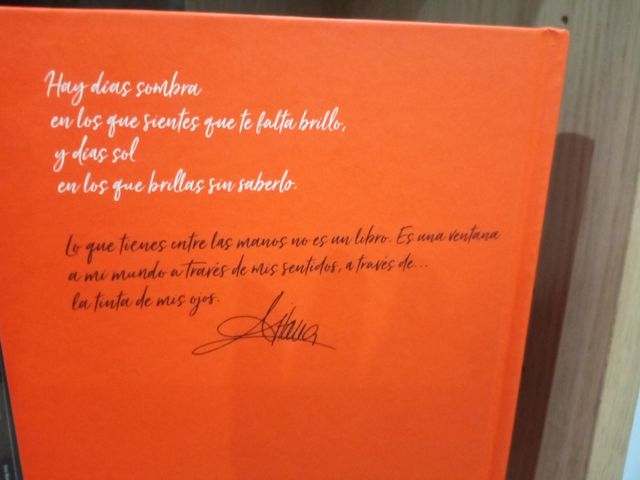 Hay días sombra
en los que sientes que te falta brillo,
y días sol
en los que brillas sin saberlo.
Lo que tienes entre las manos no es un libro. Es una ventana
a mi mundo a través de mis sentidos, a través de...
la tinta de mis ojos.
Aitana